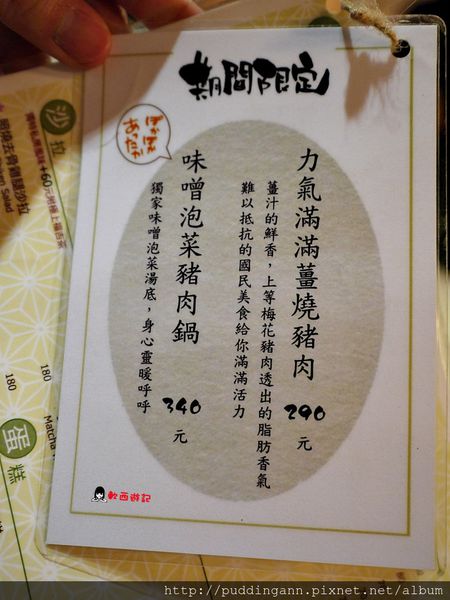 期間限定
ぽかぽか
あったか
力氣滿滿薑燒豬肉
290元
薑汁的鮮香，上等梅花豬肉透出的脂肪香氣
難以抵抗的國民美食給你滿滿活力
味噌泡菜豬肉鍋
340元
獨家味噌泡菜湯底，身心靈暖呼呼
軟西遊記
沙拉
+60元
180
180
Matcha
蛋糕
http://puddingann.pixnet.net/album